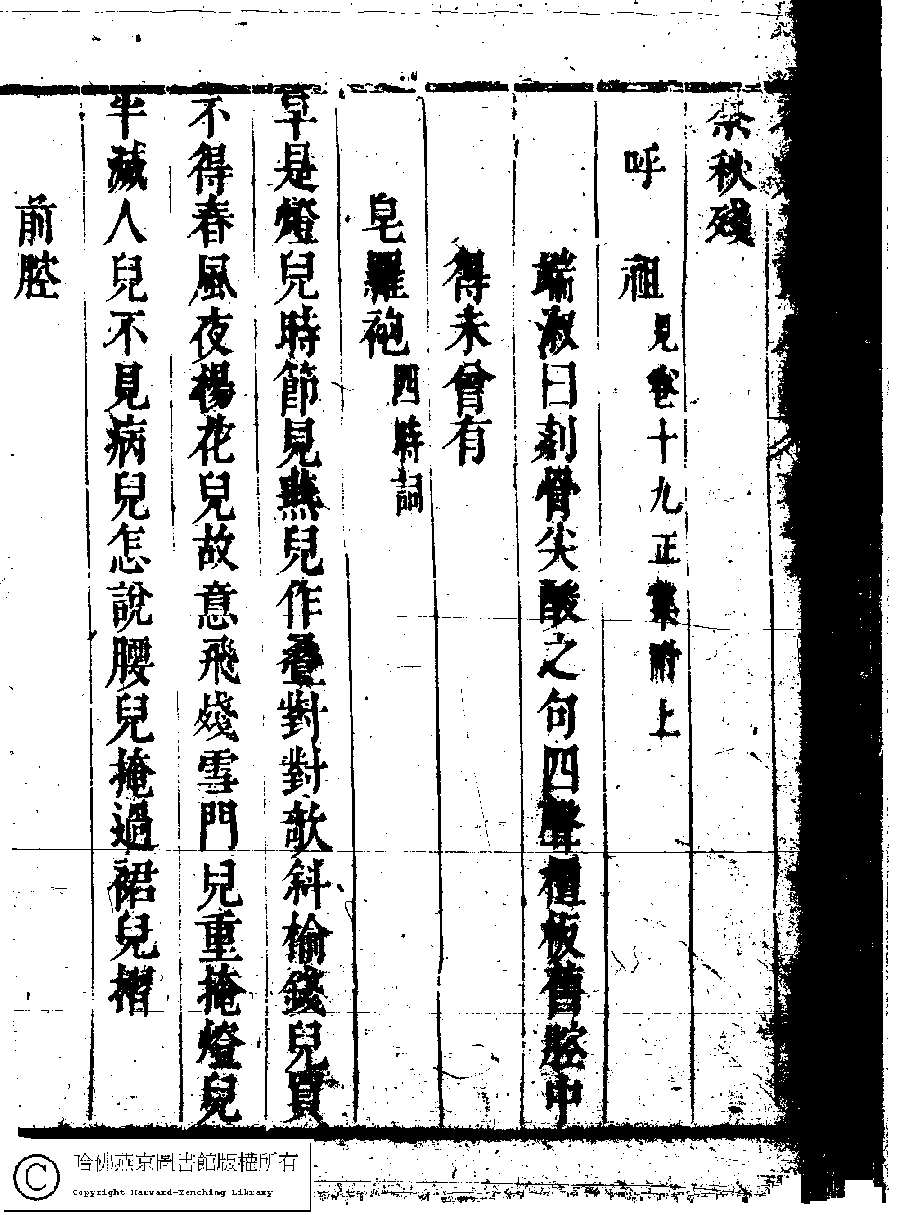 祭秋殘
呼祖見卷十九正集附上
端淑曰刻骨尖酸之句四聲檀板舊腔中
得未曾有
皂羅袍四時詞
早是燈兒時節見燕兒作疊對對欹斜榆錢兒買
不得春風夜楊花兒故意飛殘雪門兒重掩燈兒
半滅人兒不見病兒怎說腰兒掩過裙兒摺
前腔
哈佛燕京圖書館版權所有
Copyright Harvard-Yenching Library